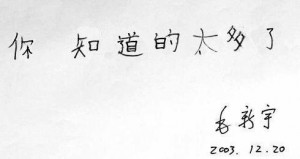 你知道的太多了
毛新宇
2003.12.20